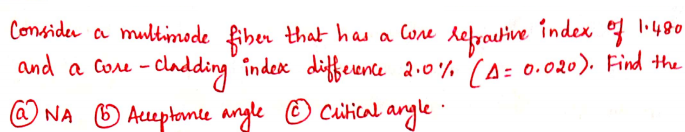 Consider a multimode fiber that has a core refractive index of 1.480
and a core-cladding index difference 2.0% (Δ = 0.020). Find the
ⓐ NA ⓑ Acceptance angle ⓒ Critical angle.